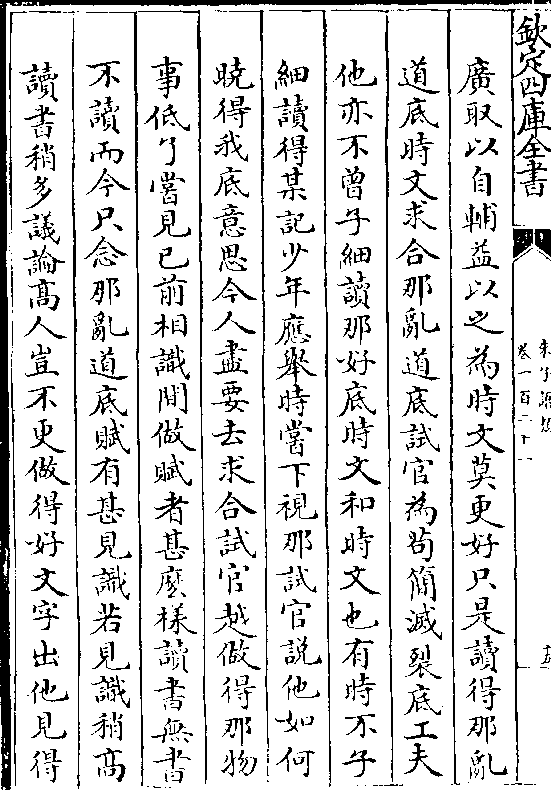 欽定四庫全書
朱子語類
卷一百二十一
廣取以自輔益以之為時文莫更好只是讀得那亂
道底時文求合那亂道底試官為苟簡滅裂底工夫
他亦不曾子細讀那好底時文和時文也有時不子
細讀得某記少年應舉時嘗下視那試官説他如何
曉得我底意思今人盡要去求合試官越做得那物
事低了嘗見已前相識間做賦者甚麽樣讀書無書
不讀而今只念那亂道底賦有甚見識若見識稍高
讀書稍多議論高人豈不更做得好文字出他見得